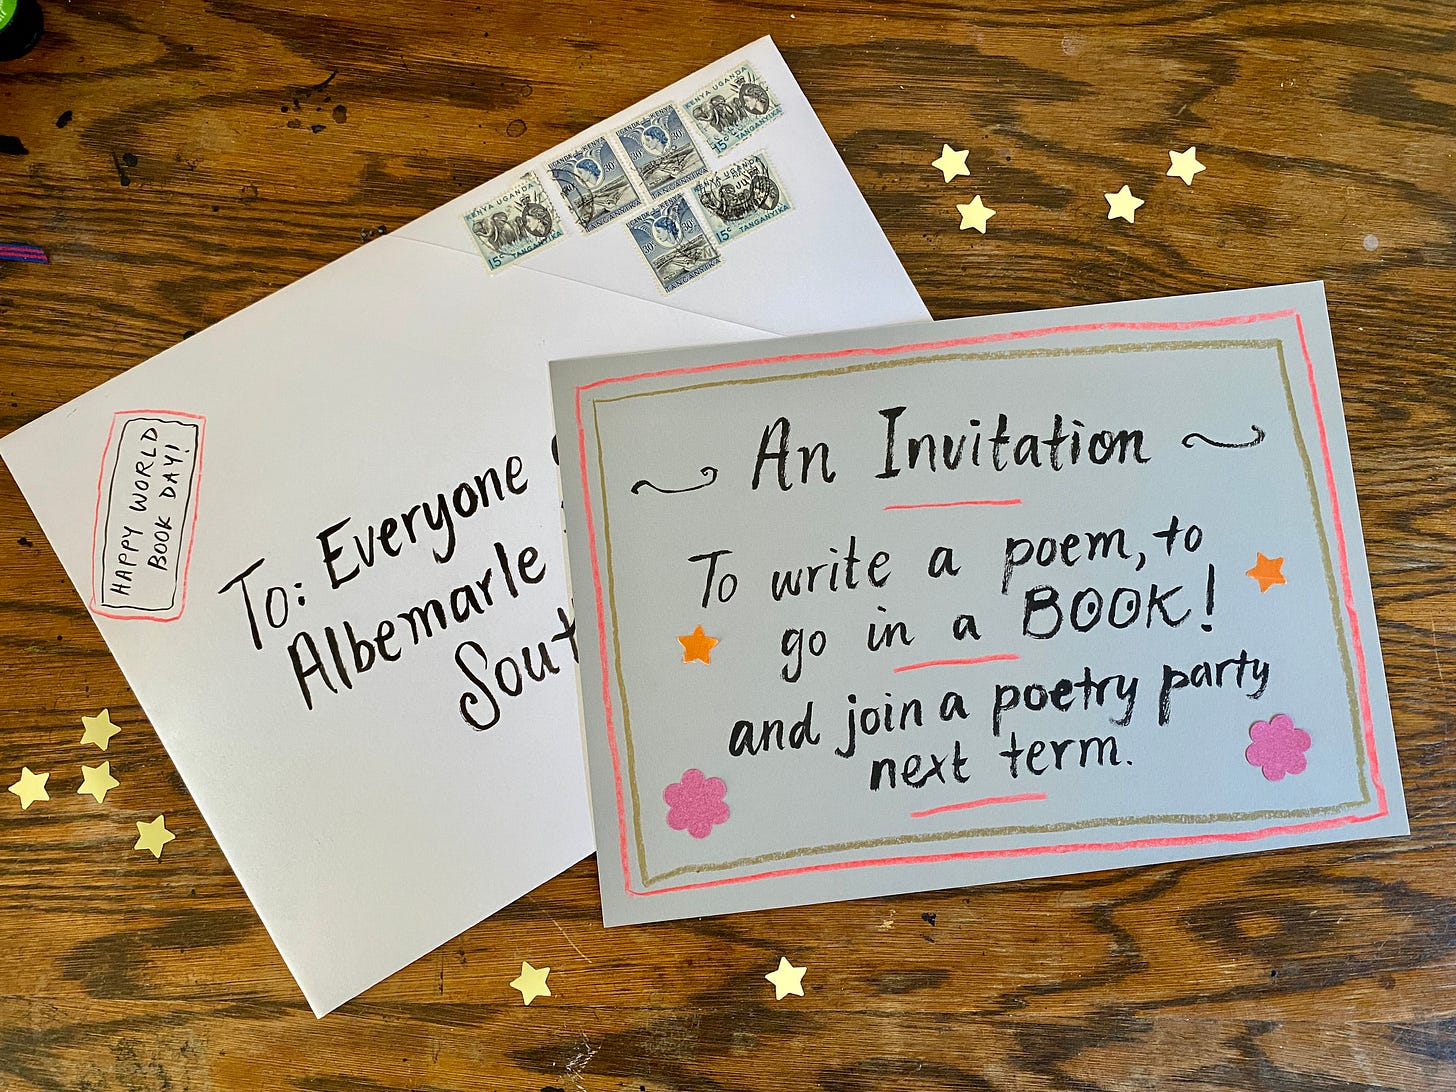 HAPPY WORLD
BOOK DAY!
To: Everyone
Albemarle
Sout
KENYA UGANDA
15c TANGANYIKA
UGANDA KENYA
30c
TANGANYIKA
UGANDA KENYA
30c
TANGANYIKA
KENYA UGANDA
15c TANGANYIKA
KENYA UGANDA
15c TANGANYIKA
UGANDA KENYA
30c
TANGANYIKA
An Invitation
To write a poem, to
go in a BOOK!
and join a poetry party
next term.